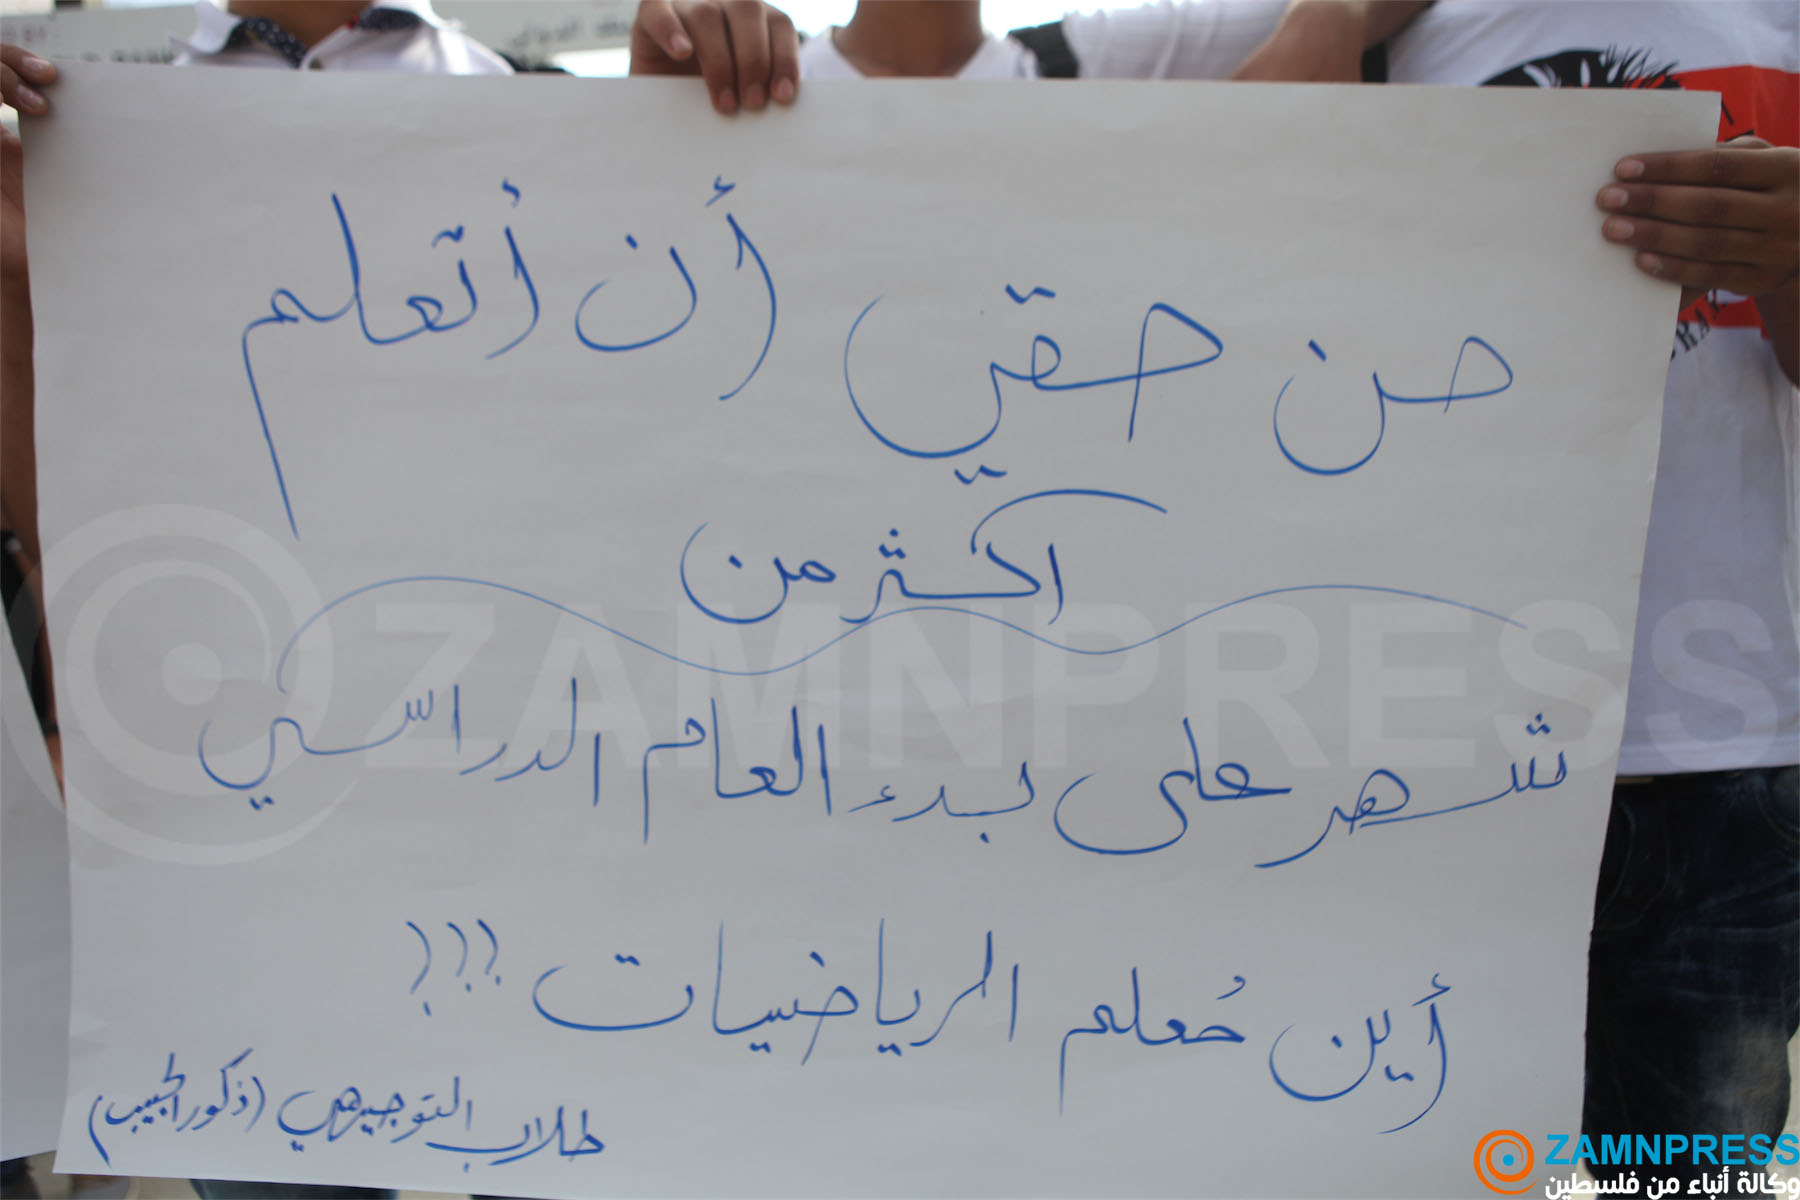 من حقي أن أتعلم
اكثر من
شهر على بدء العام الدراسي
أين مُعلم الرياضيات ؟؟؟
طلاب التوجيهي (ذكور الجيب)
ZAMNPRESS
ZAMNPRESS
وكالة أنباء من فلسطين